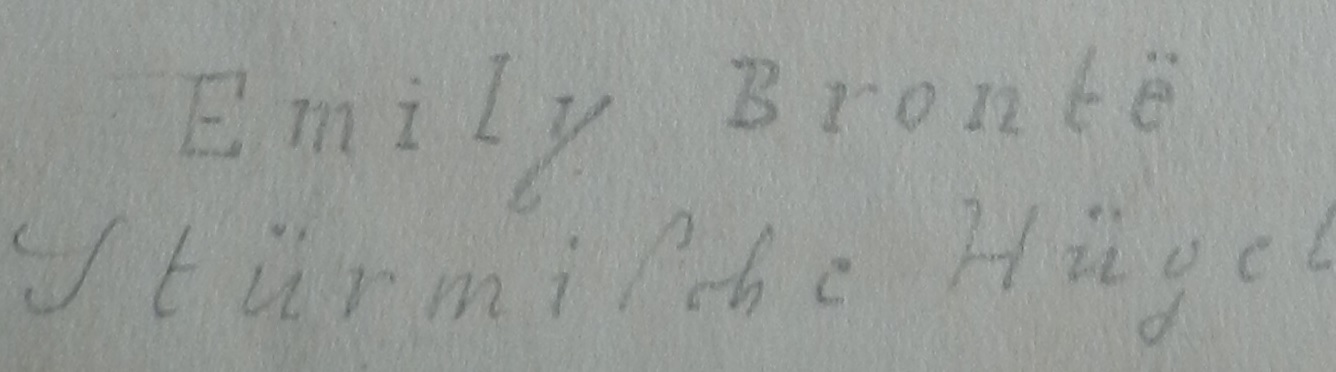 Emily Brontë
Stürmiſche Hügel